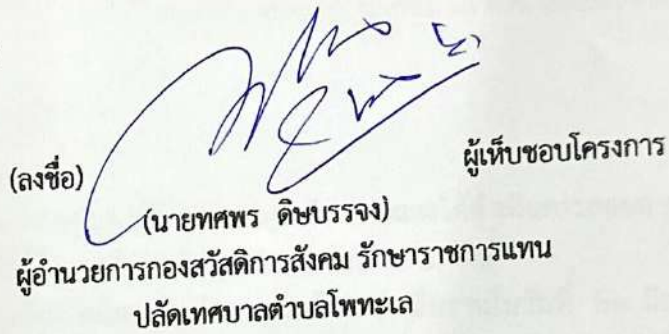 (ลงชื่อ) ผู้เห็นชอบโครงการ
(นายทศพร ดิษบรรจง)
ผู้อำนวยการกองสวัสดิการสังคม รักษาราชการแทน
ปลัดเทศบาลตำบลโพทะเล